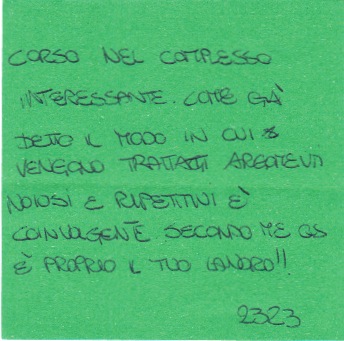 CORSO NEL COMPLESSO
INTERESSANTE. COME GIÀ
DETTO IL MODO IN CUI
VENGONO TRATTATI ARGOMENTI
NOIOSI E RIPETITIVI È
COINVOLGENTE SECONDO ME QS
È PROPRIO IL TUO LAVORO!!
2323